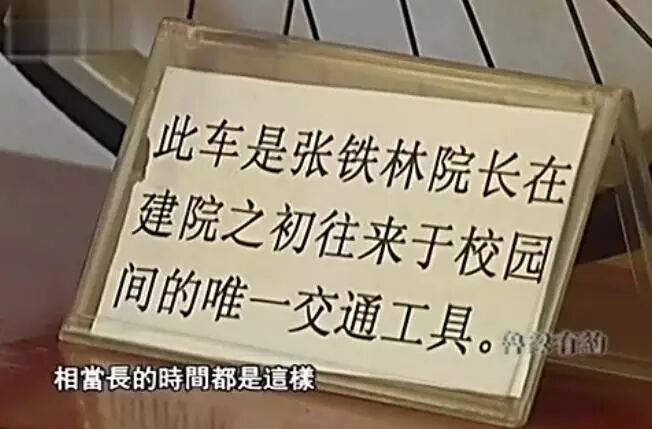 此车是张铁林院长在
建院之初往来于校园
间的唯一交通工具。
鲁豫有約
相當長的時間都是這樣